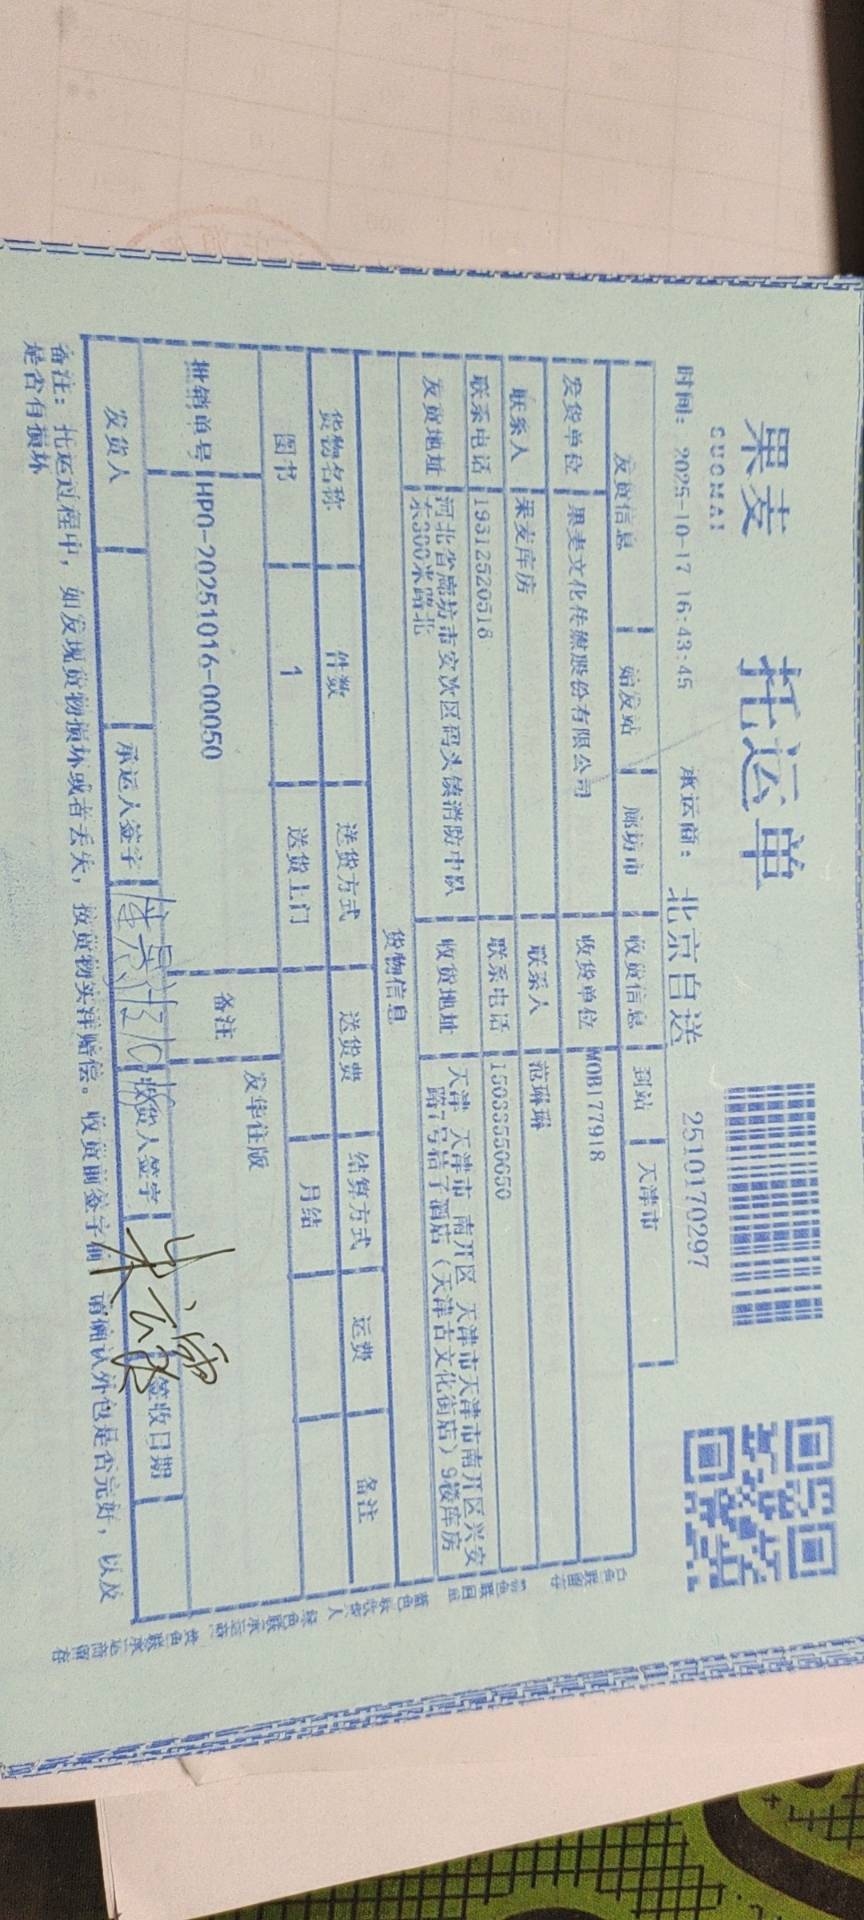 果麦 托运单
GUOMAI
时间: 2025-10-17 16:43:45 承运商: 北京自送 2510170297
发货信息 始发站 廊坊市 收货信息 到站 天津市
发货单位 果麦文化传媒股份有限公司 收货单位 MOB177918
联系人 果麦库房 联系人 范琳琳
联系电话 19312520518 联系电话 15033550650
发货地址 河北省廊坊市安次区码头镇消防中队东300米路北 收货地址 天津 天津市 南开区 天津市天津市南开区兴安路7号桔子酒店(天津古文化街店)9楼库房
货物信息
货物名称 件数 送货方式 送货费 结算方式 运费 备注
图书 1 送货上门 月结
批销单号 HPO-20251016-00050 备注 发华住版
发货人 承运人签字 收货人签字 签收日期
备注: 托运过程中, 如发现货物损坏或者丢失, 按货物实洋赔偿。收货前签字前 请确认外包是否完好, 以及
是否有损坏
白色联留存 蓝色联收货人 绿色联承运商 黄色联承运商留存